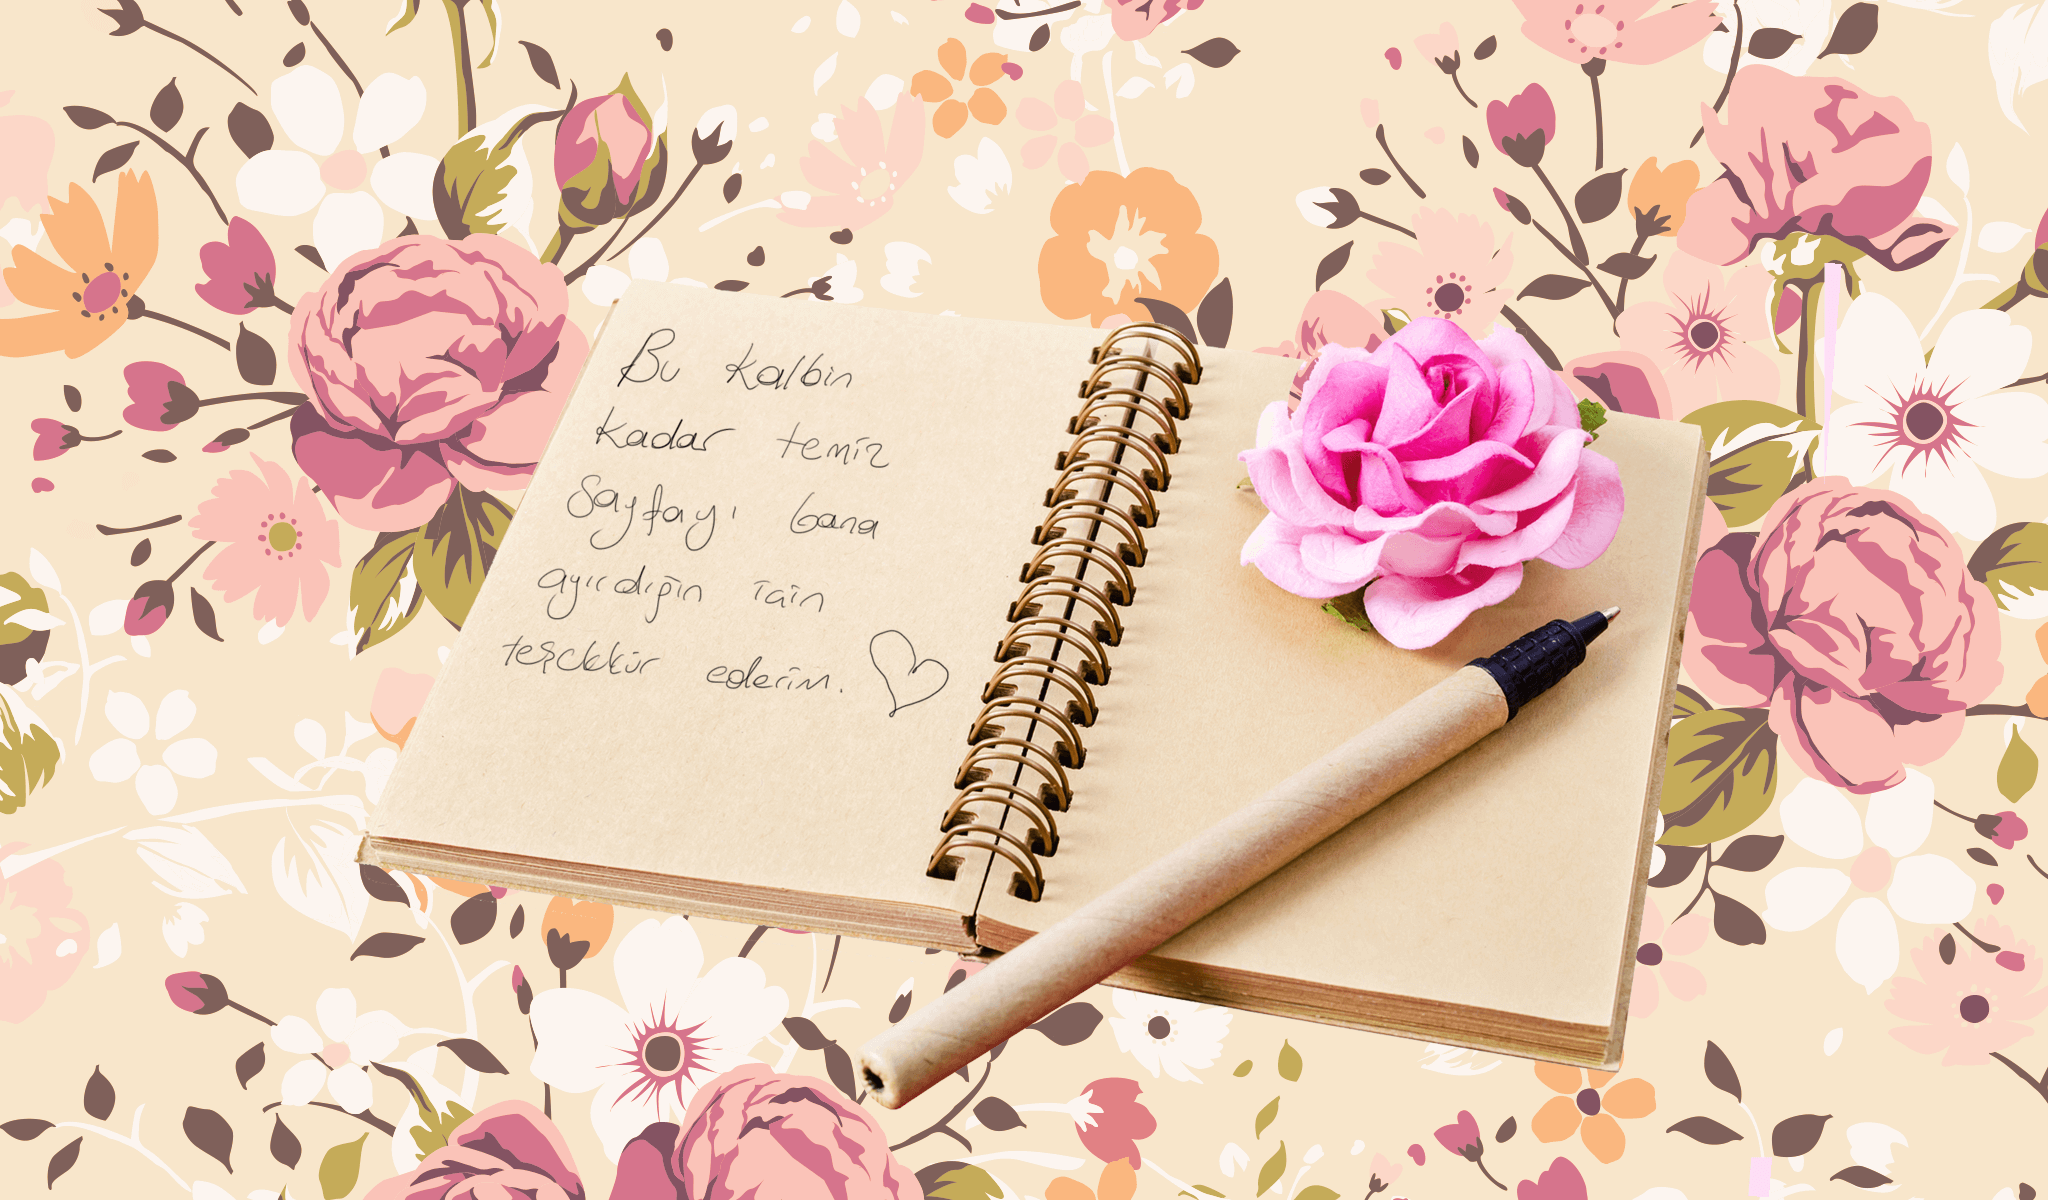 Bu kalbin
kadar temiz
sayfayı bana
ayırdığın için
teşekkür ederim.